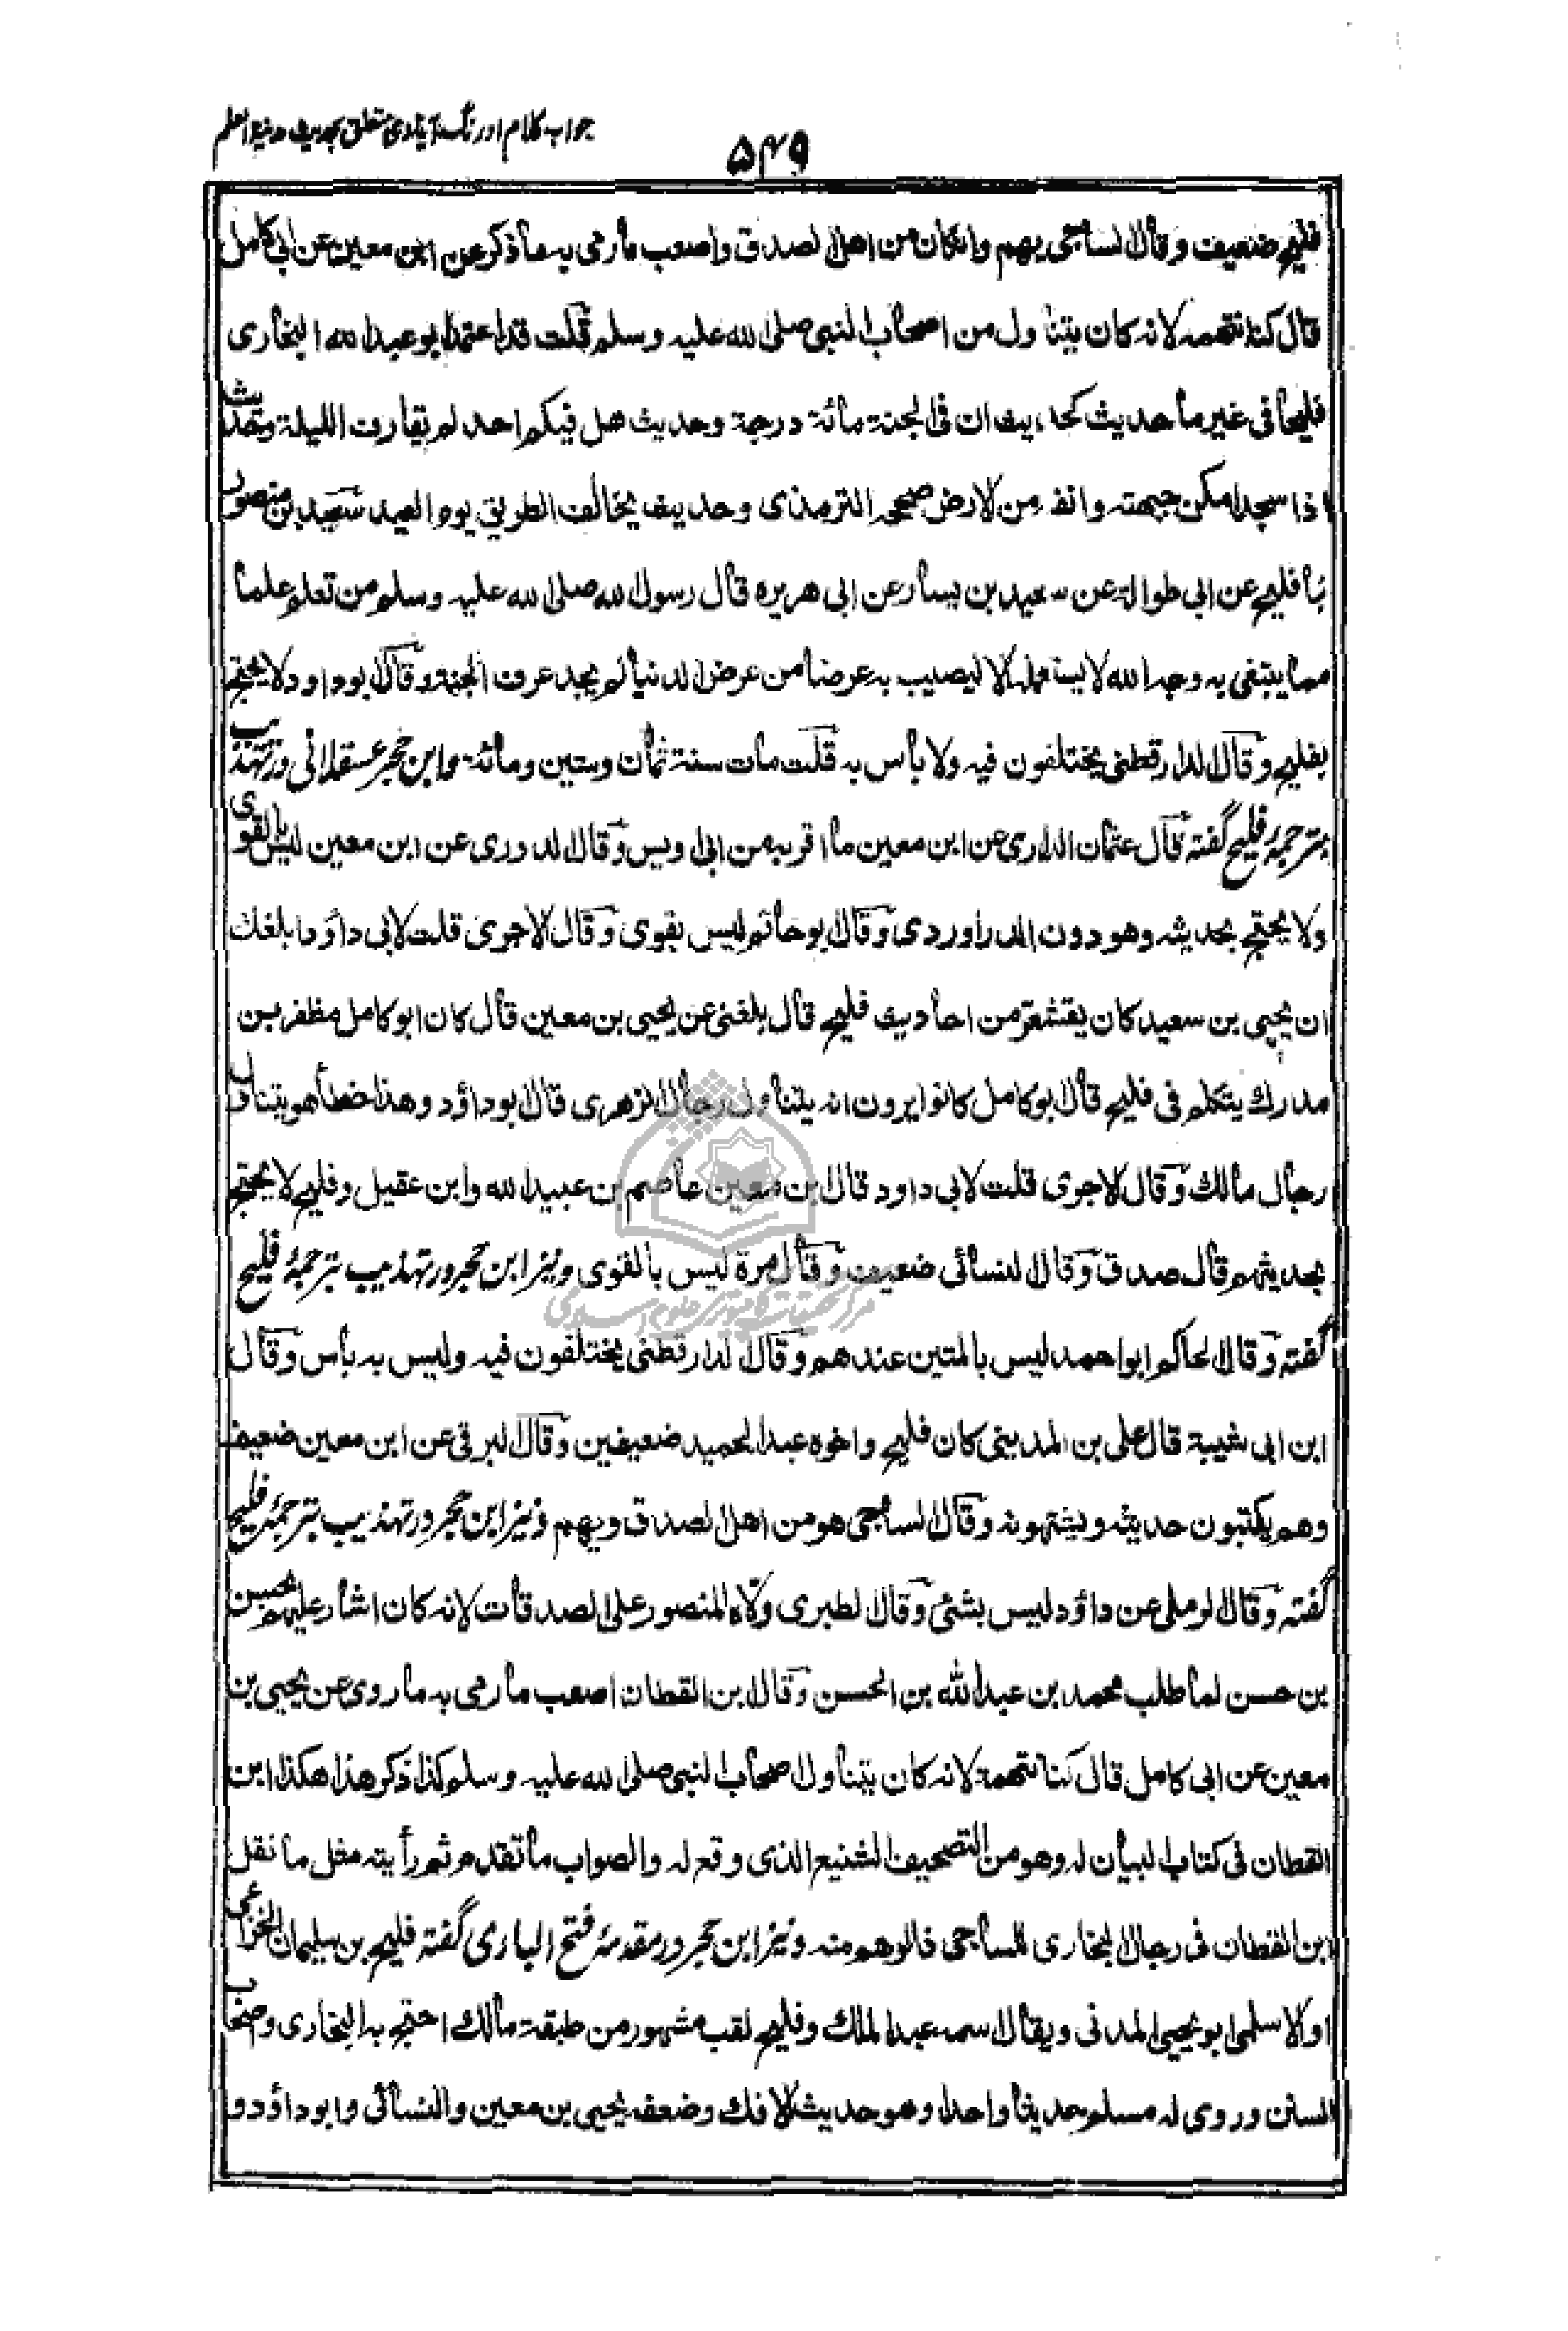 جواب کلام اورنگ آبادی متعلق بحدیث مدینة العلم
۵۴۹
فليح ضعيف وقال الساجي يهم وان كان من اهل الصدق واصعب ما رمي به ما ذكر عن ابن معين عن ابي كامل
قال كنا نتهمه لانه كان يتناول من اصحاب النبي صلى الله عليه وسلم قلت قد اعتمد ابو عبد الله البخاري
فليحا في غير ما حديث كحديث ان في الجنة مائة درجة وحديث هل فيكم احد لم يقارف الليلة وحديث
اذا سجد امكن جبهته وانفه من الارض صححه الترمذي وحديث يخالف الطريق يوم العيد سعيد بن منصور
نا فليح عن ابي طوالة عن سعيد بن يسار عن ابي هريره قال رسول الله صلى الله عليه وسلم من تعلم علما
مما يبتغى به وجه الله لا يتعلمه الا ليصيب به عرضا من عرض الدنيا لم يجد عرف الجنة وقال ابو داود لا يحتج
بفليح وقال الدارقطني يختلفون فيه ولا بأس به قلت مات سنة ثمان وستين ومائة وابن حجر عسقلانی در تهذیب
بترجمهٔ فلیح گفته قال عثمان الدارمي عن ابن معين ما اقربه من ابي اويس وقال الدوري عن ابن معين ليس بالقوي
ولا يحتج بحديثه وهو دون الدراوردي وقال ابو حاتم ليس بقوي وقال الاجري قلت لابي داؤد ابلغك
ان يحيى بن سعيد كان يقتشعر من احاديث فليح قال بلغني عن يحيى بن معين قال كان ابو كامل مظفر بن
مدرك يتكلم في فليح قال ابو كامل كانوا يرون انه يتناول رجال الزهري قال ابو داؤد وهذا خطأ هو يتناول
رجال مالك وقال الاجري قلت لابي داود قال ابن معين عاصم بن عبيد الله وابن عقيل وفليح لا يحتج
بحديثهم قال صدق وقال النسائي ضعيف وقال مرة ليس بالقوي ونیز ابن حجر در تهذیب بترجمهٔ فلیح
گفته وقال الحاكم ابو احمد ليس بالمتين عندهم وقال الدارقطني يختلفون فيه وليس به بأس وقال
ابن ابي شيبة قال علي بن المديني كان فليح واخوه عبد الحميد ضعيفين وقال البرقي عن ابن معين ضعيف
وهم يكتبون حديثه ويشتهونه وقال الساجي هو من اهل الصدق ويهم ونیز ابن حجر در تهذیب بترجمهٔ فلیح
گفته وقال الرملي عن داؤد ليس بشئ وقال الطبري ولاه المنصور على الصدقات لانه كان اشار عليهم بحبس
بن حسن لما طلب محمد بن عبد الله بن الحسن وقال ابن القطان اصعب ما رمي به ما روي عن يحيى بن
معين عن ابي كامل قال كنا نتهمه لانه كان يتناول اصحاب النبي صلى الله عليه وسلم كذا ذكر هذا هكذا ابن
القطان في كتاب البيان له وهو من التصحيف الشنيع الذي وقع له والصواب ما تقدم ثم رأيته مثل ما نقل
ابن القطان في رجال البخاري للساجي فالوهم منه ونیز ابن حجر در مقدمهٔ فتح الباری گفته فليح بن سليمان الخزاعي
او الاسلمي ابو يحيى المدني ويقال اسمه عبد الملك وفليح لقب مشهور من طبقة مالك احتج به البخاري واصحاب
السنن وروى له مسلم حديثا واحدا وهو حديث الافك وضعفه يحيى بن معين والنسائي وابو داؤد و
مرکز تحقیقات کامپیوتری علوم اسلامی